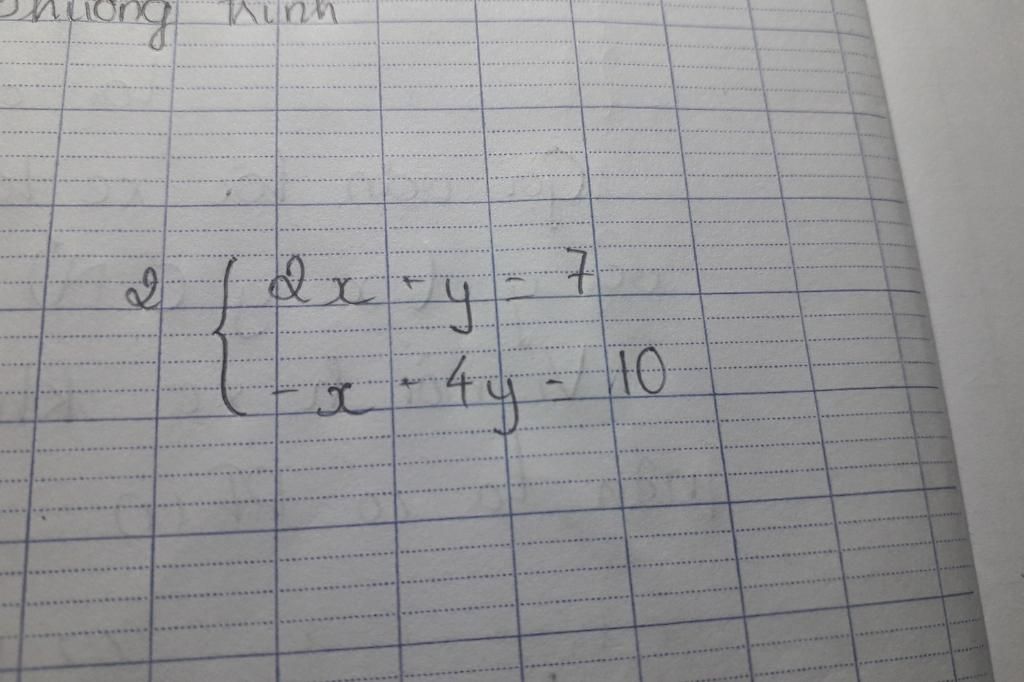 phương trình
2 { 2x - y = 7
- x - 4y = 10